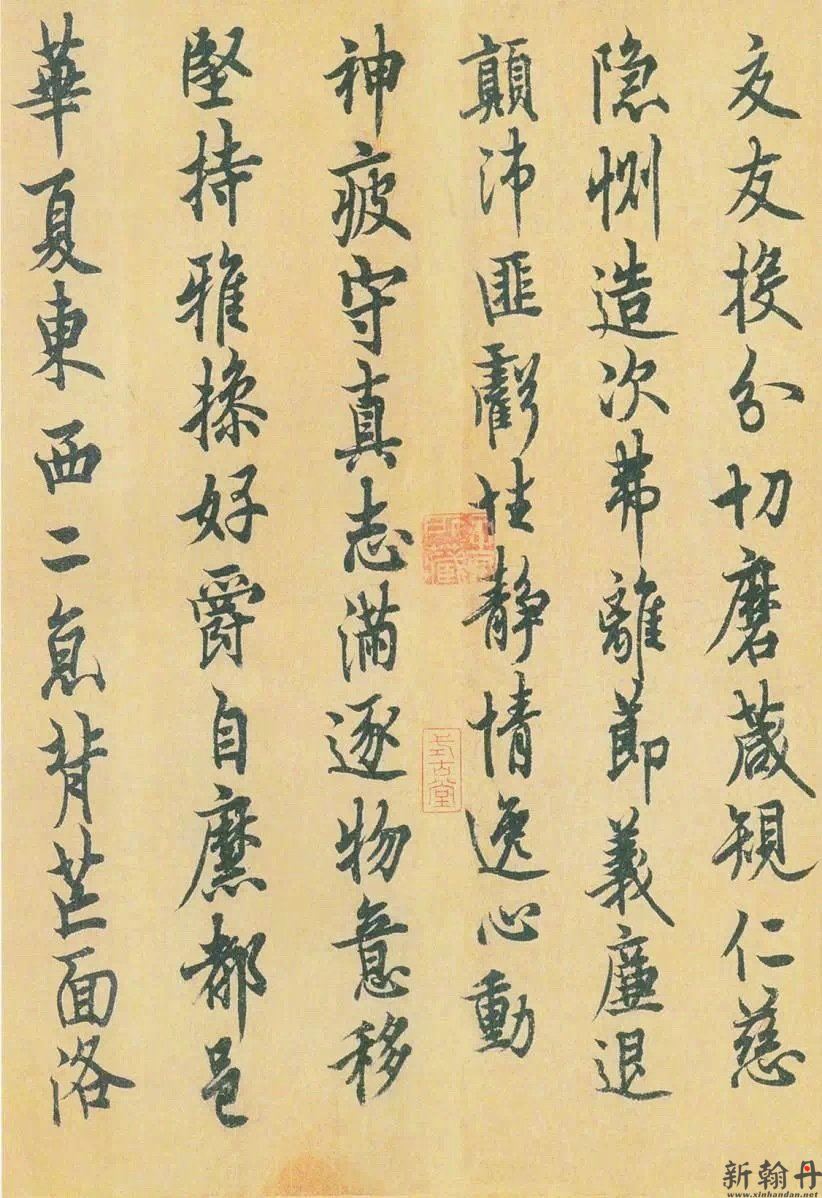 交友投分切磨箴規仁慈
隐惻造次弗離節義廉退
顛沛匪虧性靜情逸心動
神疲守真志滿逐物意移
堅持雅操好爵自縻都邑
華夏東西二京背芒面洛
式古堂
新翰丹
www.xinhandan.net